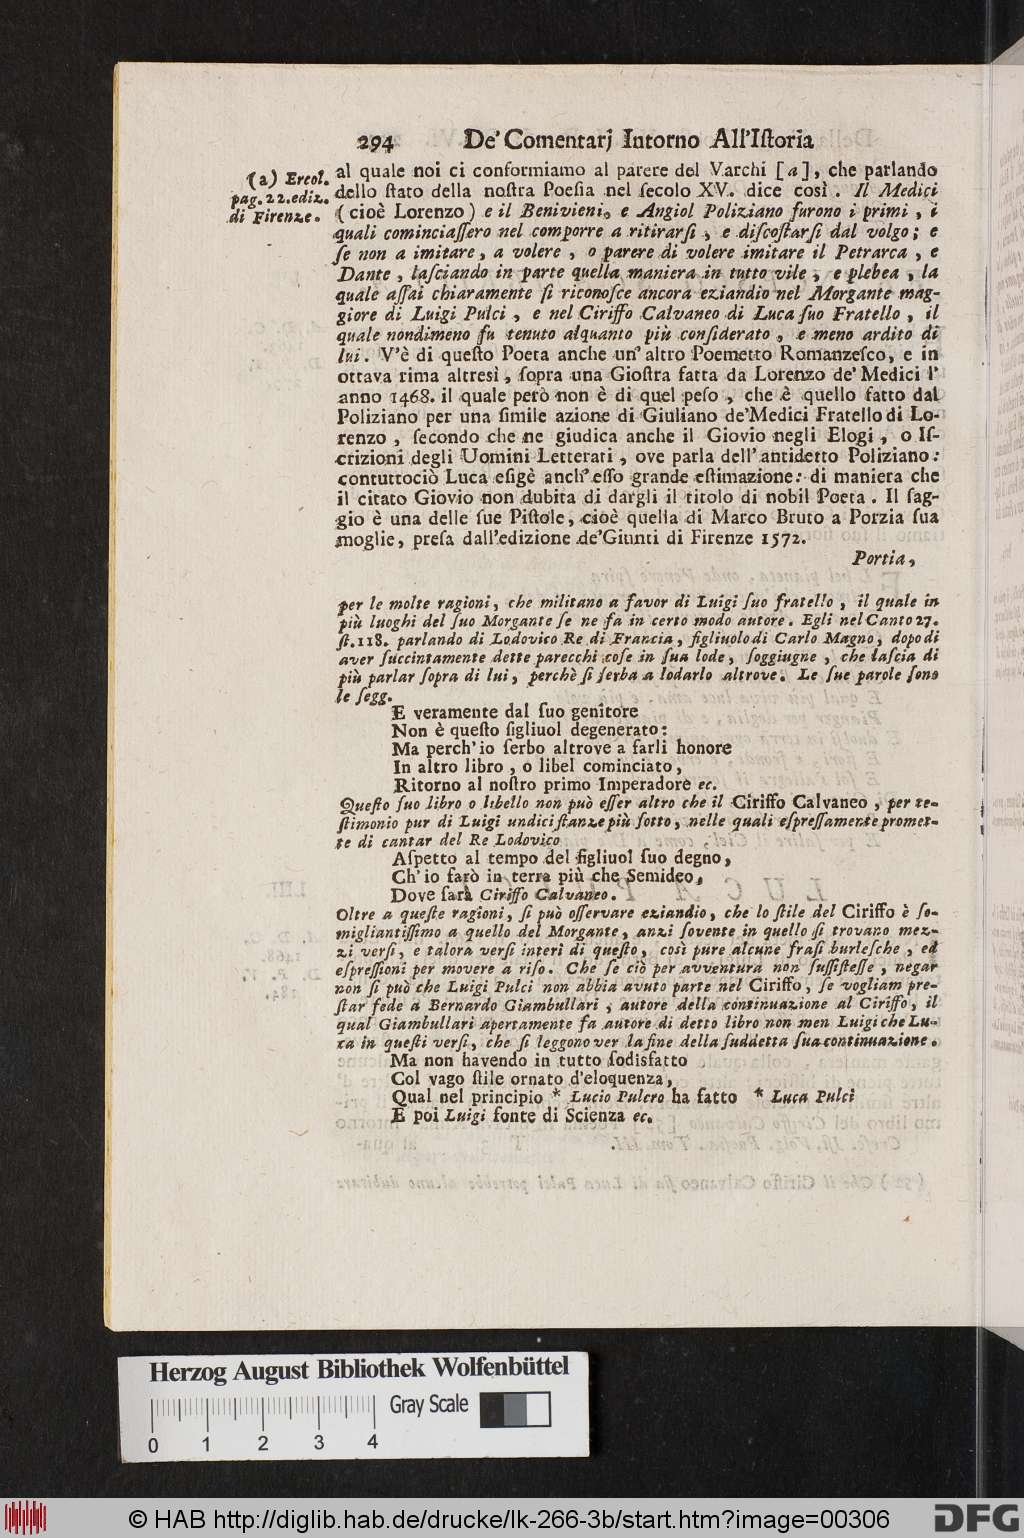 294 De' Comentarj Intorno All'Iſtoria
(a) Ercol.
pag. 22. ediz.
di Firenze.
al quale noi ci conformiamo al parere del Varchi [a], che parlando
dello ſtato della noſtra Poeſia nel ſecolo XV. dice così. Il Medici
(cioè Lorenzo) e il Benivieni, e Angiol Poliziano furono i primi, i
quali cominciaſſero nel comporre a ritirarſi, e diſcoſtarſi dal volgo; e
ſe non a imitare, a volere, o parere di volere imitare il Petrarca, e
Dante, laſciando in parte quella maniera in tutto vile, e plebea, la
quale aſſai chiaramente ſi riconoſce ancora eziandio nel Morgante mag-
giore di Luigi Pulci, e nel Ciriffo Calvaneo di Luca ſuo Fratello, il
quale nondimeno fu tenuto alquanto più conſiderato, e meno ardito di
lui. V'è di queſto Poeta anche un' altro Poemetto Romanzeſco, e in
ottava rima altresì, ſopra una Gioſtra fatta da Lorenzo de' Medici l'
anno 1468. il quale però non è di quel peſo, che è quello fatto dal
Poliziano per una ſimile azione di Giuliano de' Medici Fratello di Lo-
renzo, ſecondo che ne giudica anche il Giovio negli Elogi, o Iſ-
crizioni degli Uomini Letterati, ove parla dell' antidetto Poliziano:
contuttociò Luca eſigè anch' eſſo grande eſtimazione: di maniera che
il citato Giovio non dubita di dargli il titolo di nobil Poeta. Il ſag-
gio è una delle ſue Piſtole, cioè quella di Marco Bruto a Porzia ſua
moglie, preſa dall'edizione de' Giunti di Firenze 1572.
Portia,
per le molte ragioni, che militano a favor di Luigi ſuo fratello, il quale in
più luoghi del ſuo Morgante ſe ne fa in certo modo autore. Egli nel Canto 27.
ſt. 118. parlando di Lodovico Re di Francia, figliuolo di Carlo Magno, dopo di
aver ſuccintamente dette parecchi coſe in ſua lode, ſoggiugne, che laſcia di
più parlar ſopra di lui, perchè ſi ſerba a lodarlo altrove. Le ſue parole ſono
le ſegg.
E veramente dal ſuo genitore
Non è queſto figliuol degenerato:
Ma perch' io ſerbo altrove a farli honore
In altro libro, o libel cominciato,
Ritorno al noſtro primo Imperadore ec.
Queſto ſuo libro o libello non può eſſer altro che il Ciriffo Calvaneo, per te-
ſtimonio pur di Luigi undici ſtanze più ſotto, nelle quali eſpreſſamente promet-
te di cantar del Re Lodovico
Aſpetto al tempo del figliuol ſuo degno,
Ch' io farò in terra più che Semideo,
Dove ſarà Ciriffo Calvaneo.
Oltre a queſte ragioni, ſi può oſſervare eziandio, che lo ſtile del Ciriffo è ſo-
migliantiſſimo a quello del Morgante, anzi ſovente in quello ſi trovano mez-
zi verſi, e talora verſi interi di queſto, così pure alcune fraſi burleſche, ed
eſpreſſioni per movere a riſo. Che ſe ciò per avventura non ſuſſiſteſſe, negar
non ſi può che Luigi Pulci non abbia avuto parte nel Ciriffo, ſe vogliam pre-
ſtar fede a Bernardo Giambullari, autore della continuazione al Ciriffo, il
qual Giambullari apertamente fa autore di detto libro non men Luigi che Lu-
ca in queſti verſi, che ſi leggono ver la fine della ſuddetta ſua continuazione.
Ma non havendo in tutto ſodisfatto
Col vago ſtile ornato d'eloquenza,
Qual nel principio * Lucio Pulcro ha fatto * Luca Pulci
E poi Luigi fonte di Scienza ec.
Herzog August Bibliothek Wolfenbüttel
Gray Scale
0 1 2 3 4
© HAB http://diglib.hab.de/drucke/lk-266-3b/start.htm?image=00306
DFG